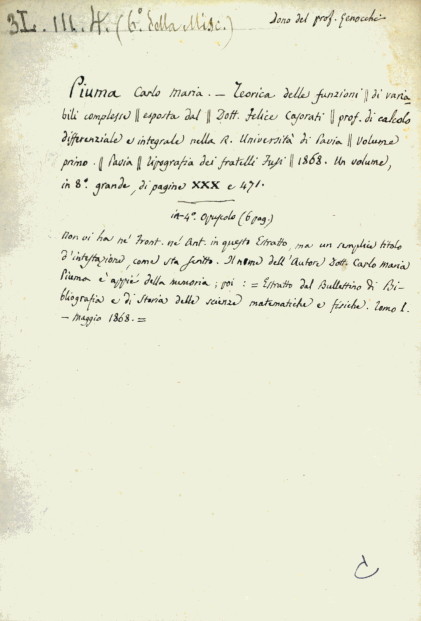 3L. III. 4. (6º. della Misc.)
Dono del prof. Genocchi
Piuma Carlo Maria. — Teorica delle funzioni || di varia
bili complesse || esposta dal || Dott. Felice Casorati || prof. di calcolo
differenziale e integrale nella R. Università di Pavia || Volume
primo. || Pavia || Tipografia dei fratelli Fusi || 1868. Un volume,
in 8º. grande, di pagine XXX e 471.
in-4º. Opuscolo (6 pag.)
Non vi ha nè Front. nè Ant. in questo Estratto, ma un semplice titolo
d'intestazione, come sta scritto. Il nome dell'Autore Dott. Carlo Maria
Piuma è appiè della memoria; poi : = Estratto dal Bullettino di Bi-
bliografia e di Storia delle scienze matematiche e fisiche. Tomo I.
— Maggio 1868. =